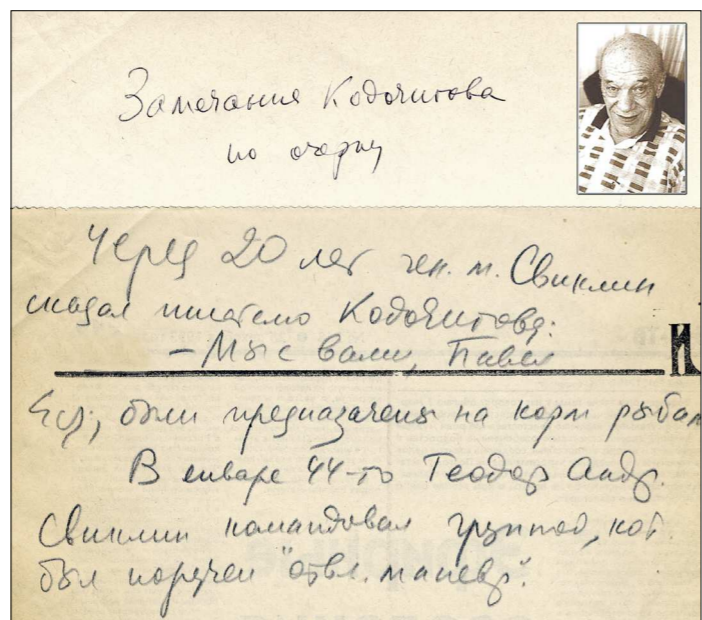 Замечания Кодочигова
по очерку
Через 20 лет ген. м. Свиклин
сказал писателю Кодочигову:
– Мы с вами, Павел
И
Еф., были предназачены на корм рыбам
В январе 44-го Теодор Андр.
Свиклин командовал группой, кот.
был поручен "отвл. маневр".